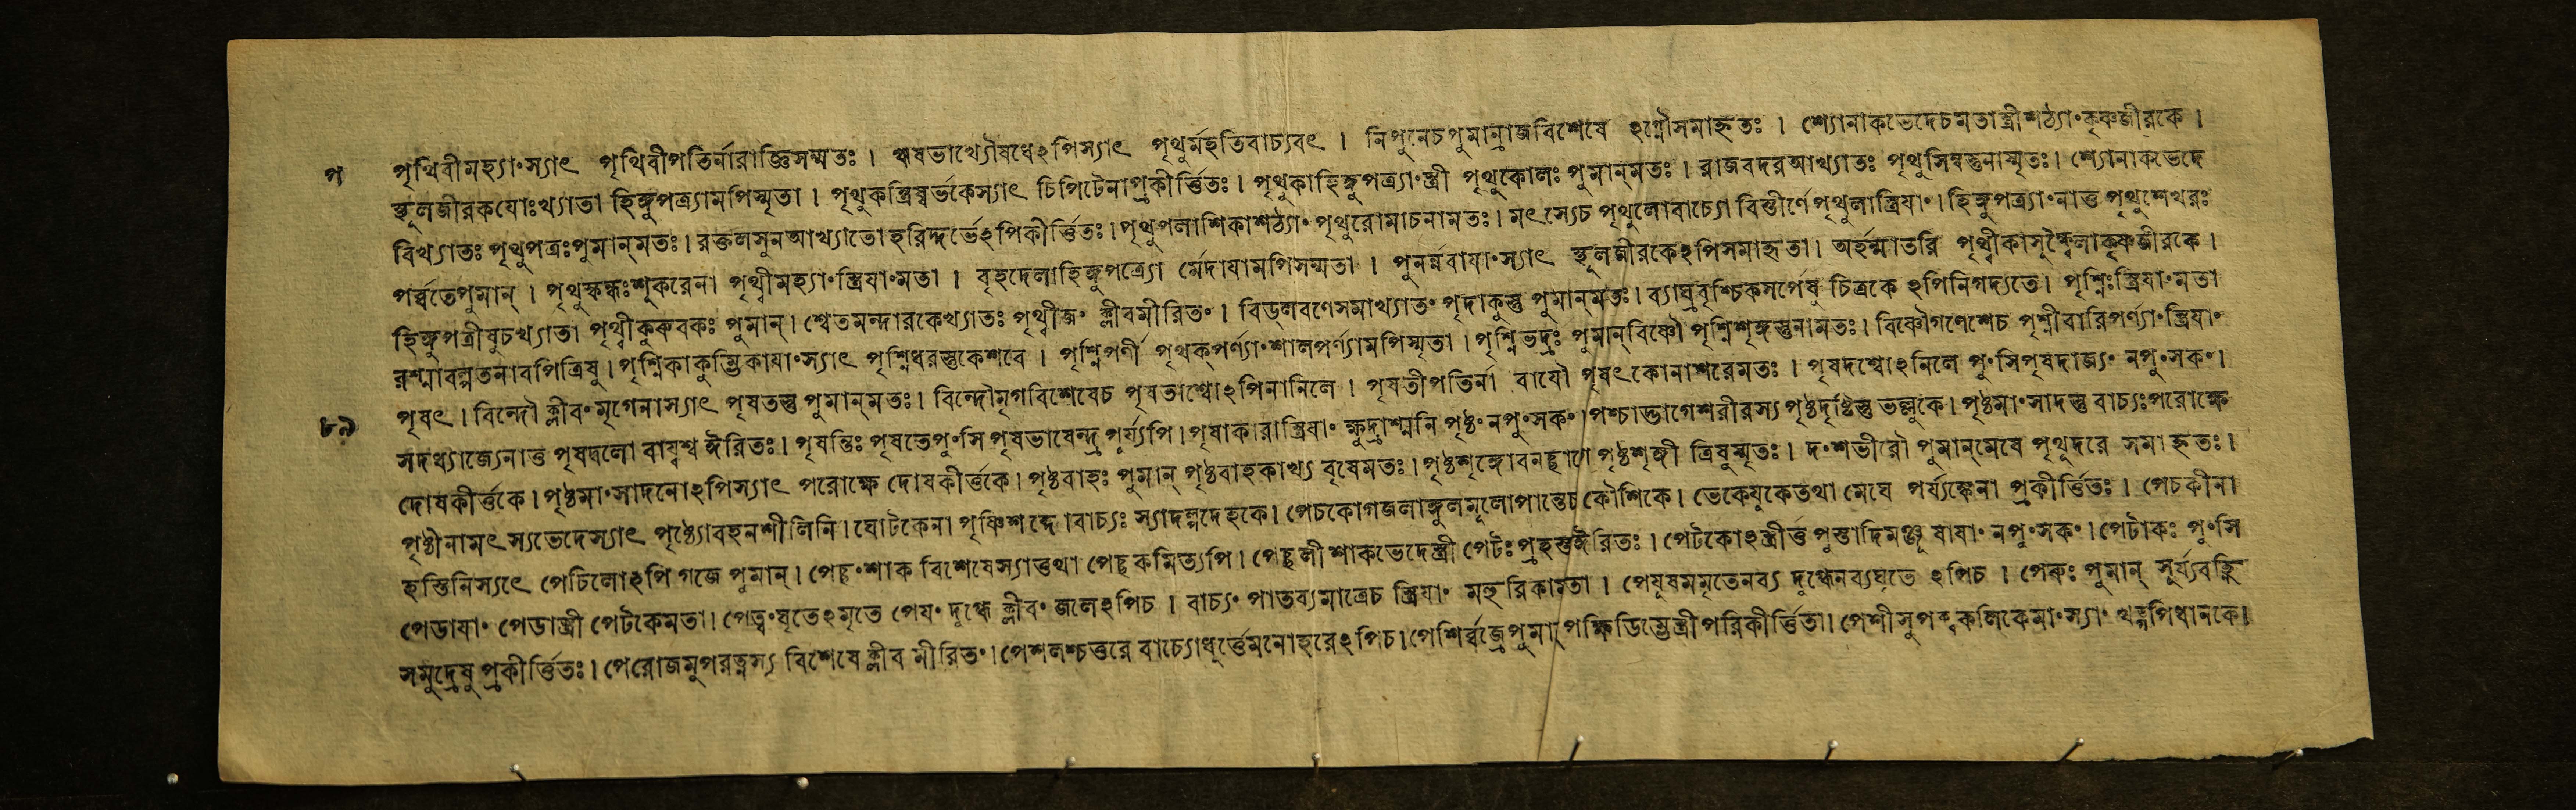 প পৃথিবীমহ্যাংস্যাৎ পৃথিবীপতির্নারাজ্ঞিসম্মতঃ । ঋষভাখ্যৌষধেঽপিস্যাৎ পৃথুর্মহতিবাচ্যবৎ । নিপুনেচপুমান্রাজবিশেষে ঽগ্নৌসমাহৃতঃ । শ্যোনাকভেদেচমতাস্ত্রীশঠ্যাংকৃষ্ণজীরকে ।
স্থূলজীরকযোঃখ্যাতা হিঙ্গুপত্র্যামপিস্মৃতা । পৃথুকস্ত্রিষ্বর্ভকেস্যাৎ চিপিটেনাপ্রকীর্ত্তিতঃ । পৃথুকাহিঙ্গুপত্র্যাংস্ত্রী পৃথুকোলঃ পুমান্মতঃ । রাজবদরআখ্যাতঃ পৃথুসিম্বস্তুনাস্মৃতঃ । শ্যোনাকভেদে
বিখ্যাতঃ পৃথুপত্রঃপুমান্মতঃ । রক্তলসুনআখ্যাতো হরিদ্দর্ভেঽপিকীর্ত্তিতঃ । পৃথুপলাশিকাশঠ্যাং পৃথুরোমাচনামতঃ । মৎস্যেচ পৃথুলোবাচ্যো বিস্তীর্ণে পৃথুলাস্ত্রিযাং । হিঙ্গুপত্র্যাংনাত্ত পৃথুশেখরঃ
পর্ব্বতেপুমান্ । পৃথুস্কন্ধঃশূকরেনা পৃথ্বীমহ্যাংস্ত্রিযাংমতা । বৃহদেলাহিঙ্গুপত্র্যো র্মেদাযামপিসম্মতা । পুনর্ন্নবাযাংস্যাৎ স্থূলজীরকেঽপিসমাহৃতা । অর্হন্মাতরি পৃথ্বীকাসুক্ষ্মৈলাকৃষ্ণজীরকে ।
হিঙ্গুপত্রীষুচখ্যাতা পৃথ্বীকুরুবকঃ পুমান্ । শ্বেতমন্দারকেখ্যাতঃ পৃথ্বীজং ক্লীবমীরিতং । বিড্লবণেসমাখ্যাতং পৃদাকুস্তু পুমান্মতঃ । ব্যাঘ্রবৃশ্চিকসর্পেষু চিত্রকে ঽপিনিগদ্যতে । পৃশ্নিঃস্ত্রিযাংমতা
রশ্মাবল্পতনাবপিত্রিষু । পৃশ্নিকাকুম্ভিকাযাংস্যাৎ পৃশ্নিধরস্তুকেশবে । পৃশ্নিপর্ণী পৃথক্পর্ণ্যাংশালপর্ণ্যামপিস্মৃতা । পৃশ্নিভদ্রঃ পুমান্বিষ্ণৌ পৃশ্নিশৃঙ্গস্তুনামতঃ । বিষ্ণৌগণেশেচ পৃশ্নীবারিপর্ণ্যাংস্ত্রিযাং
পৃষৎ । বিন্দৌক্লীবংমৃগেনাস্যাৎ পৃষতস্তু পুমান্মতঃ । বিন্দৌমৃগবিশেষেচ পৃষতাশ্বোঽপিনানিলে । পৃষতীপতির্না বাযৌ পৃষৎকোনাশরেমতঃ । পৃষদশ্বোঽনিলে পুংসিপৃষদাজ্যং নপুংসকং ।
৮৯ সদধ্যাজ্যেনাত্ত পৃষদ্বলো বায্বশ্ব ঈরিতঃ । পৃষন্তিঃ পৃষতেপুংসি পৃষভাষেন্দ্রপূর্য্যপি । পৃষাকারাস্ত্রিযাং ক্ষুদ্রাশ্মনি পৃষ্ঠংনপুংসকং । পশ্চাদ্ভাগেশরীরস্য পৃষ্ঠদৃষ্টিস্তু ভল্লুকে । পৃষ্ঠমাংসাদস্তু বাচ্যঃপরোক্ষে
দোষকীর্ত্তকে । পৃষ্ঠমাংসাদনোঽপিস্যাৎ পরোক্ষে দোষকীর্ত্তকে । পৃষ্ঠবাহঃ পুমান্ পৃষ্ঠবাহকাখ্য বৃষেমতঃ । পৃষ্ঠশৃঙ্গোবনচ্ছাগে পৃষ্ঠশৃঙ্গী ত্রিষুস্মৃতঃ । দংশভীরৌ পুমান্মেষে পৃথূদরে সমাহৃতঃ ।
পৃষ্ঠীনামৎস্যভেদেস্যাৎ পৃষ্ঠ্যোবহনশীলিনি । ঘোটকেনা পৃষ্ণিশব্দোবাচ্যঃ স্যাদল্পদেহকে । পেচকোগজলাঙ্গুলমূলোপান্তেচ কৌশিকে । ভেকেযুকেতথা মেঘে পর্য্যঙ্কেনা প্রকীর্ত্তিতঃ । পেচকীনা
হস্তিনিস্যাৎ পেচিলোঽপি গজে পুমান্ । পেচ্চংশাক বিশেষেস্যাত্তথা পেচ্চকমিত্যপি । পেচ্চলী শাকভেদেস্ত্রী পেটঃপ্রহস্তঈরিতঃ । পেটকোঽস্ত্রীত্ত পুস্তাদিমঞ্জুষাযাং নপুংসকং । পেটাকঃ পুংসি
পেডাযাং পেডাস্ত্রী পেটকেমতা । পেত্বংঘৃতেঽমৃতে পেযংদুগ্ধে ক্লীবং জলেঽপিচ । বাচ্যং পাতব্যমাত্রেচ স্ত্রিযাং মহুরিকামতা । পেযূষমমৃতেনব্য দুগ্ধেনব্যঘৃতে ঽপিচ । পেরুঃ পুমান্ সূর্য্যবহ্নি
সমুদ্রেষু প্রকীর্ত্তিতঃ । পেরোজমুপরত্নস্য বিশেষেক্লীব মীরিতং । পেশলশ্চতুরে বাচ্যোধূর্ত্তেমনোহরেঽপিচ । পেশির্ব্বজ্রেপুমান্পক্ষিডিম্ভেস্ত্রীপরিকীর্ত্তিতা । পেশীসুপক্বকলিকেমাংস্যাং খড্গপিধানকে ।